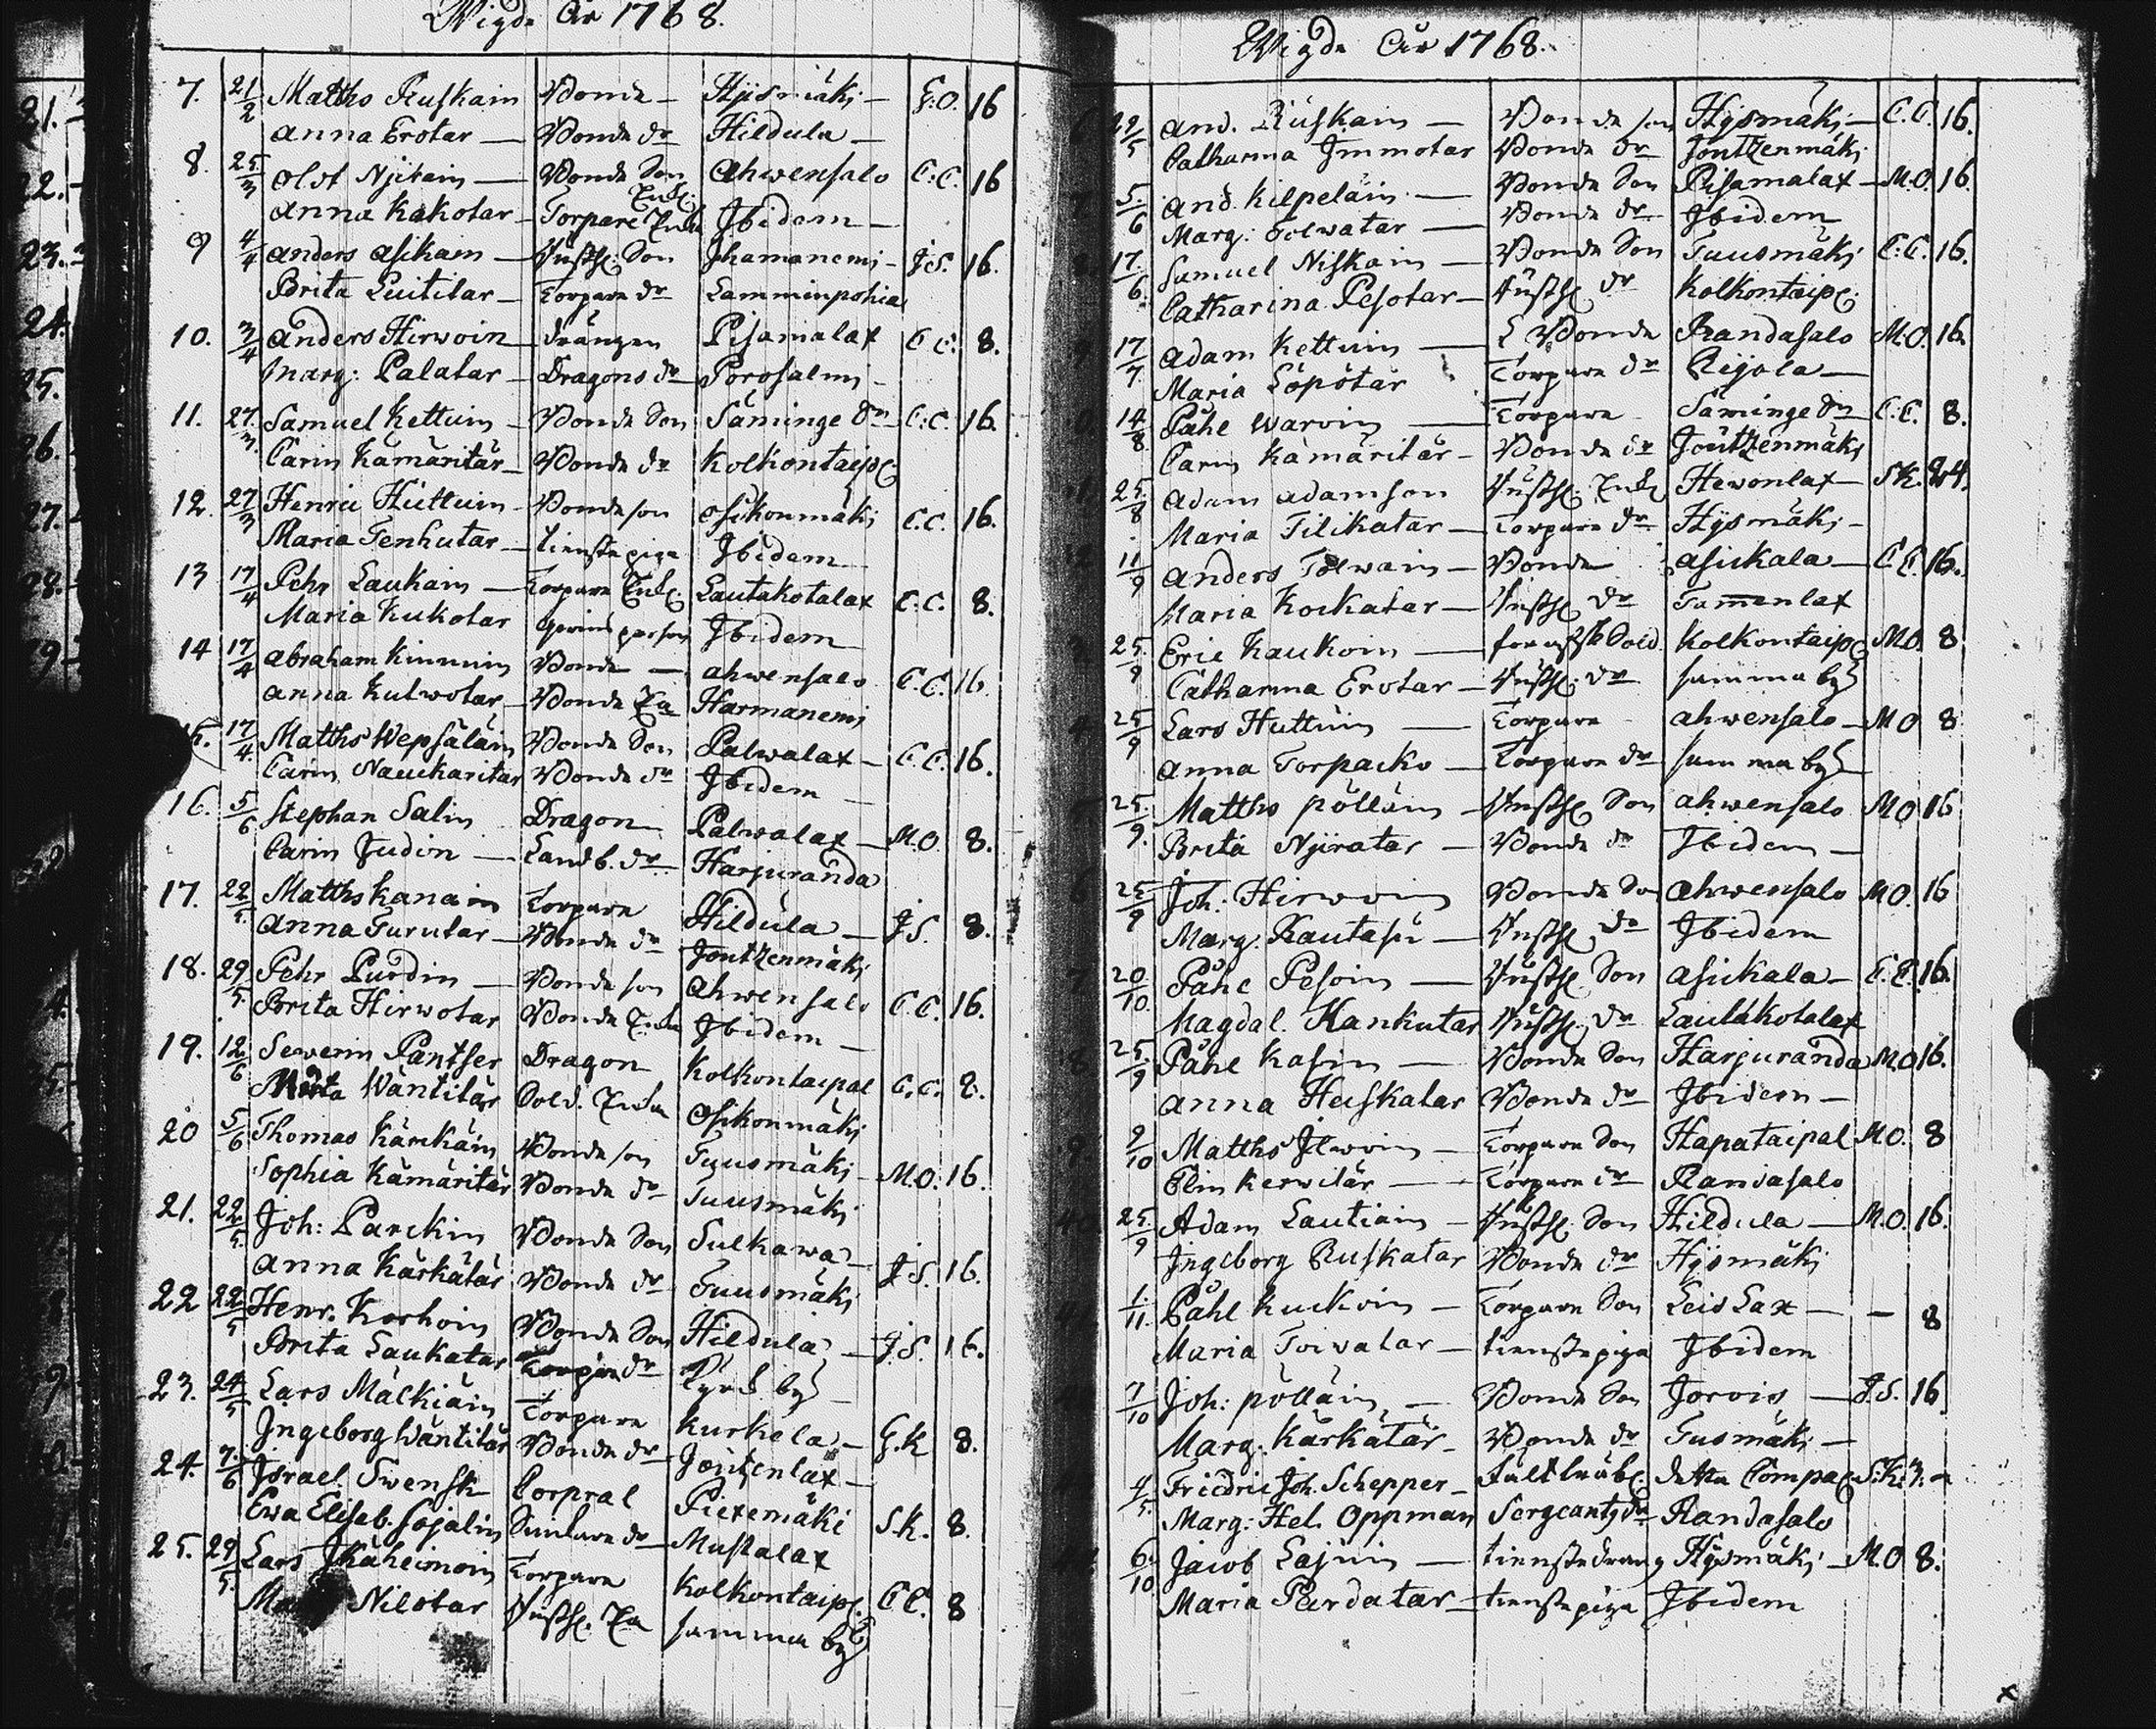 Wigde Åhr 1768.
7. 21/2 Matths Ruskain Bonde Hysmäki G:O. 16
Anna Erotar Bonde dr Hildula
8. 25/3 Olof Nyitain Bonde Son Ahwensalo C:C. 16
Enkl.
Anna Kakotar Torpare Enka Ibidem
9 4/4 Anders Asikain Inhys. Son Ihamanemi J.S. 16.
Brita Luitilar Torpare dr Lamminpohia
10. 3/4 Anders Hirwoin drängen Pisamalax C.C. 8.
Marg: Palatar Dragons dr Porosalmi
11. 27/3. Samuel Kettuin Bonde Son Säminge Sn C.C. 16.
Carin Kämäritär Bonde dr Kolkontaip.
12. 27/3 Henric Huttuin Bonde son Osikonmäki C.C. 16.
Maria Tenhutar tienstepiga Ibidem
13 17/4 Pehr Laukain Torpare Enkl. Lautakotalax C.C. 8.
Maria Kukotar Ibidem
14 17/4 Abraham Kinnuin Bonde Ahwensalo C.C. 16.
Anna Kulwotar Bonde Ea Harmanemi
15. 17/4. Matths Wepsäläin Bonde Son Palwalax C.C. 16.
Carin Nauckaritar Bonde dr Ibidem
16. 5/6 Stephan Salin Dragon Palwalax M.O. 8.
Carin Judin Landb. dr Harjuranda
17. 22/5. Matths Kanain Torpare Hildula J.S. 8.
Anna Turutar Bonde dr Joutzenmäki
18. 29/5. Pehr Purdin Bonde son Ahwensalo C.C. 16.
Brita Hirwotar Bonde Enka Ibidem
19. 12/6 Sewerin Pantser Dragon Kolkontaipal C.C. 8.
Märta Wäntitär Sold. Enka Osikonmäki
20 5/6 Thomas Kärckäin Bonde son Tuusmäki M.O. 16.
Sophia Kämäritär Bonde dr Tuusmäki
21. 22/5. Joh: Parckin Bonde Son Sulkawa J.S. 16.
Anna Kärkätär Bonde dr Tuusmäki
22 22/5 Henr. Korhoin Bonde Son Hildula J.S. 16.
Brita Laukatar Torpare dr Kyrk by
23. 24/5 Lars Mälkiäin Torpare Kurkela G.K 8.
Ingeborg Wäntitär Bonde dr Joutzenlax
24. 7./6 Israel Swensk Corpral Piexemäki S.K. 8.
Ewa Eliseb. Sojalin dr Mustalax
25. 29/5. Lars Ikäheimoin Torpare Kolkontaip. C.C. 8
Nilotar Inhys. Ea samma by
Wigde Åhr 1768.
29/5 And. Ruskain Bonde son Hysmäki C.C. 16.
Catharina Immotar Bonde dr Joutzenmäki
5./6 And. Kilpeläin Bonde Son Pisamalax M.O. 16.
Marg: Tolwatar Bonde dr Ibidem
17/6. Samuel Niskain Bonde Son Tuusmäki C.C. 16.
Catharina Pesotar Inhys dr Kolkontaip.
17/7. Adam Kettuin Bonde Randasalo M.O. 16.
Maria Löpötär Torpare dr Reijola
14/8 Påhl Warvin Torpare Säminge Sn C.C. 8.
Carin Kämäritär Bonde dr Joutzenmäki
25./8 Adam Adamson Inhys. Enkl Hewonlax S.K. 24.
Maria Tilikatar Torpare dr Hysmäki
11/9 Anders Tolwain Bonde Asickala C.C. 16.
Maria Kockatar Inhys dr Tammenlax
25./9 Eric Kaukoin Sold. Kolkontaip. M.O. 8
Catharina Erotar Inhys. dr samma by
25/9 Lars Huttuin Torpare Ahwensalo M.O 8
Anna Torpacko Torpare dr samma by
25./9. Matths Pölläin Inhys Son Ahwensalo M.O 16
Brita Nyiratar Bonde dr Ibidem
25/9 Joh: Hirwoin Bonde Son Ahwensalo M.O. 16
Marg: Rautasu Inhys dr Ibidem
20/10. Påhl Pesoin Inhys Son Asickala C.C. 16.
Magdal. Kankutar Inhys. dr Lautakotalax
25./9 Påhl Kasin Bonde Son Harjuranda M.O 16.
Anna Heiskatar Bonde dr Ibidem
9/10 Matths Ilwoin Torpare Son Hapataipal M.O. 8
Elin Kerwitär Torpare dr Randasalo
25./9 Adam Lautiain Inhys. Son Hildula M.O. 16.
Ingeborg Ruskatar Bonde dr Hysmäki
1./11. Påhl Kuckoin Torpare Son Leislax - 8
Maria Toiwatar tienstepiga Ibidem
7/10 Joh: Pölläin Bonde Son Jorois J.S. 16
Marg: Kärkätär Bonde dr Tusmäki
4/5. Friedric Joh. Schepper detta Compa. S.K. 3.
Marg: Hel. Oppman Sergeants dr Randasalo
6./10 Jacob Lajuin tienstedräng Hysmäki M.O 8.
Maria Pardatar tienstepiga Ibidem